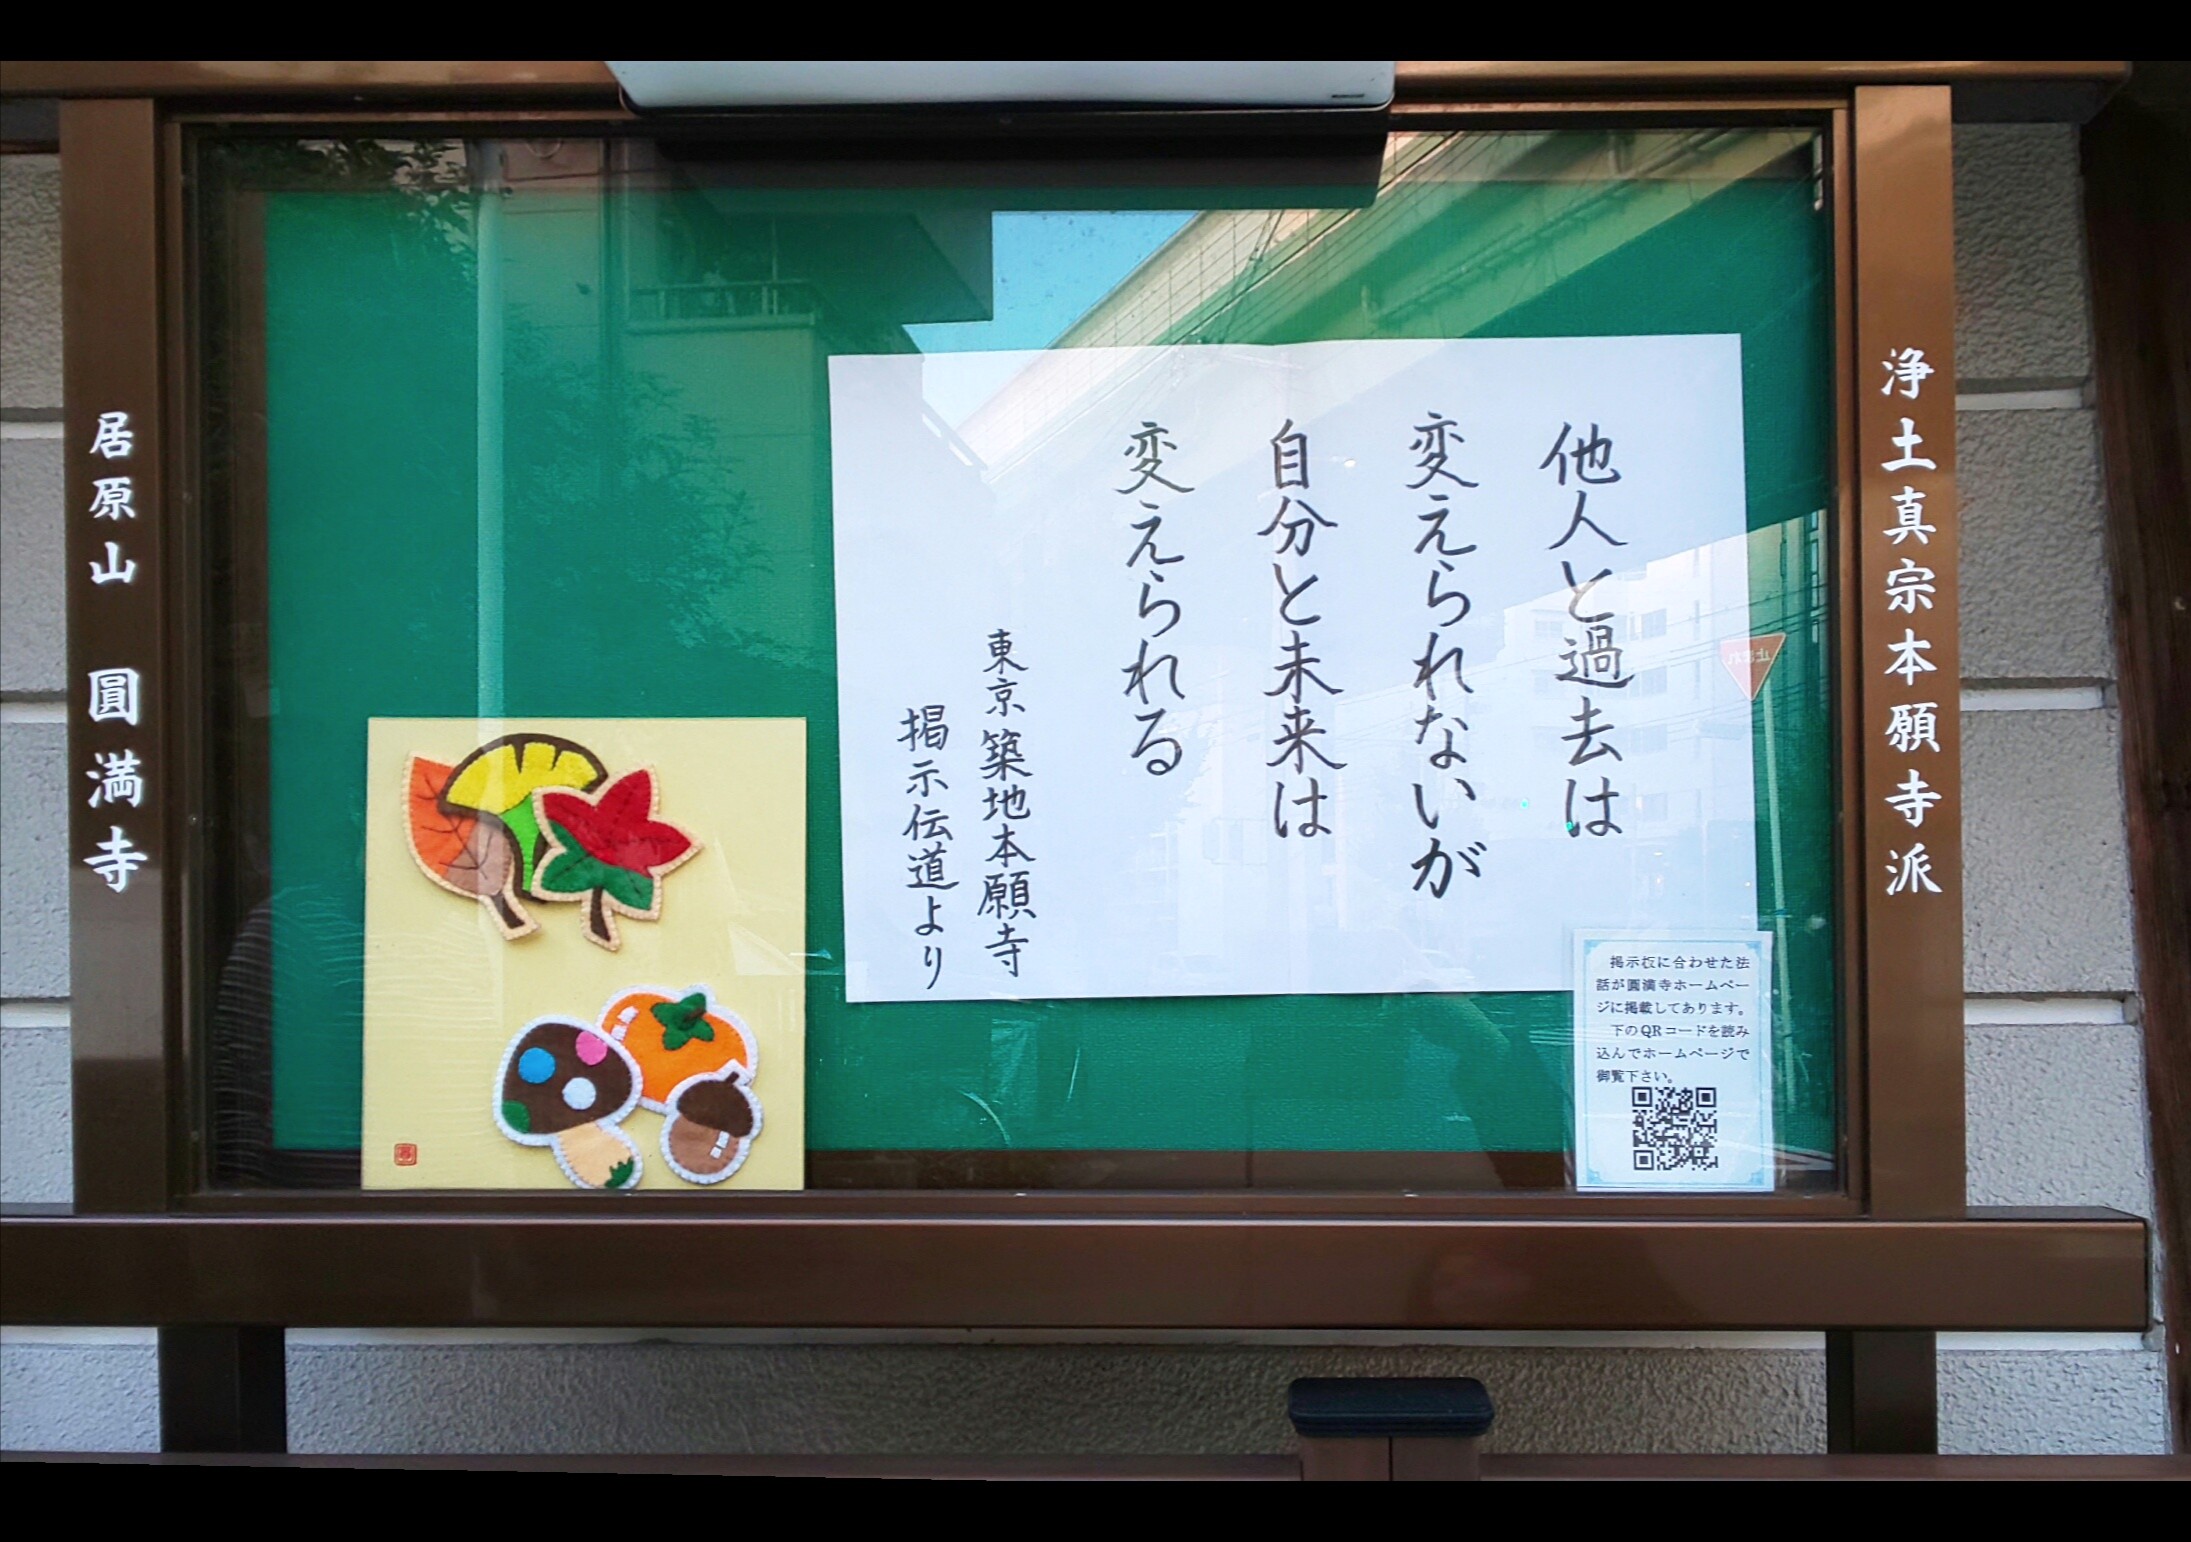 浄土真宗本願寺派
他人と過去は
変えられないが
自分と未来は
変えられる
東京築地本願寺
掲示伝道より
掲示板に合わせた法
話が圓満寺ホームペー
ジに掲載してあります。
下のQRコードを読み
込んでホームページで
御覧下さい。
居原山 圓満寺
止まれ